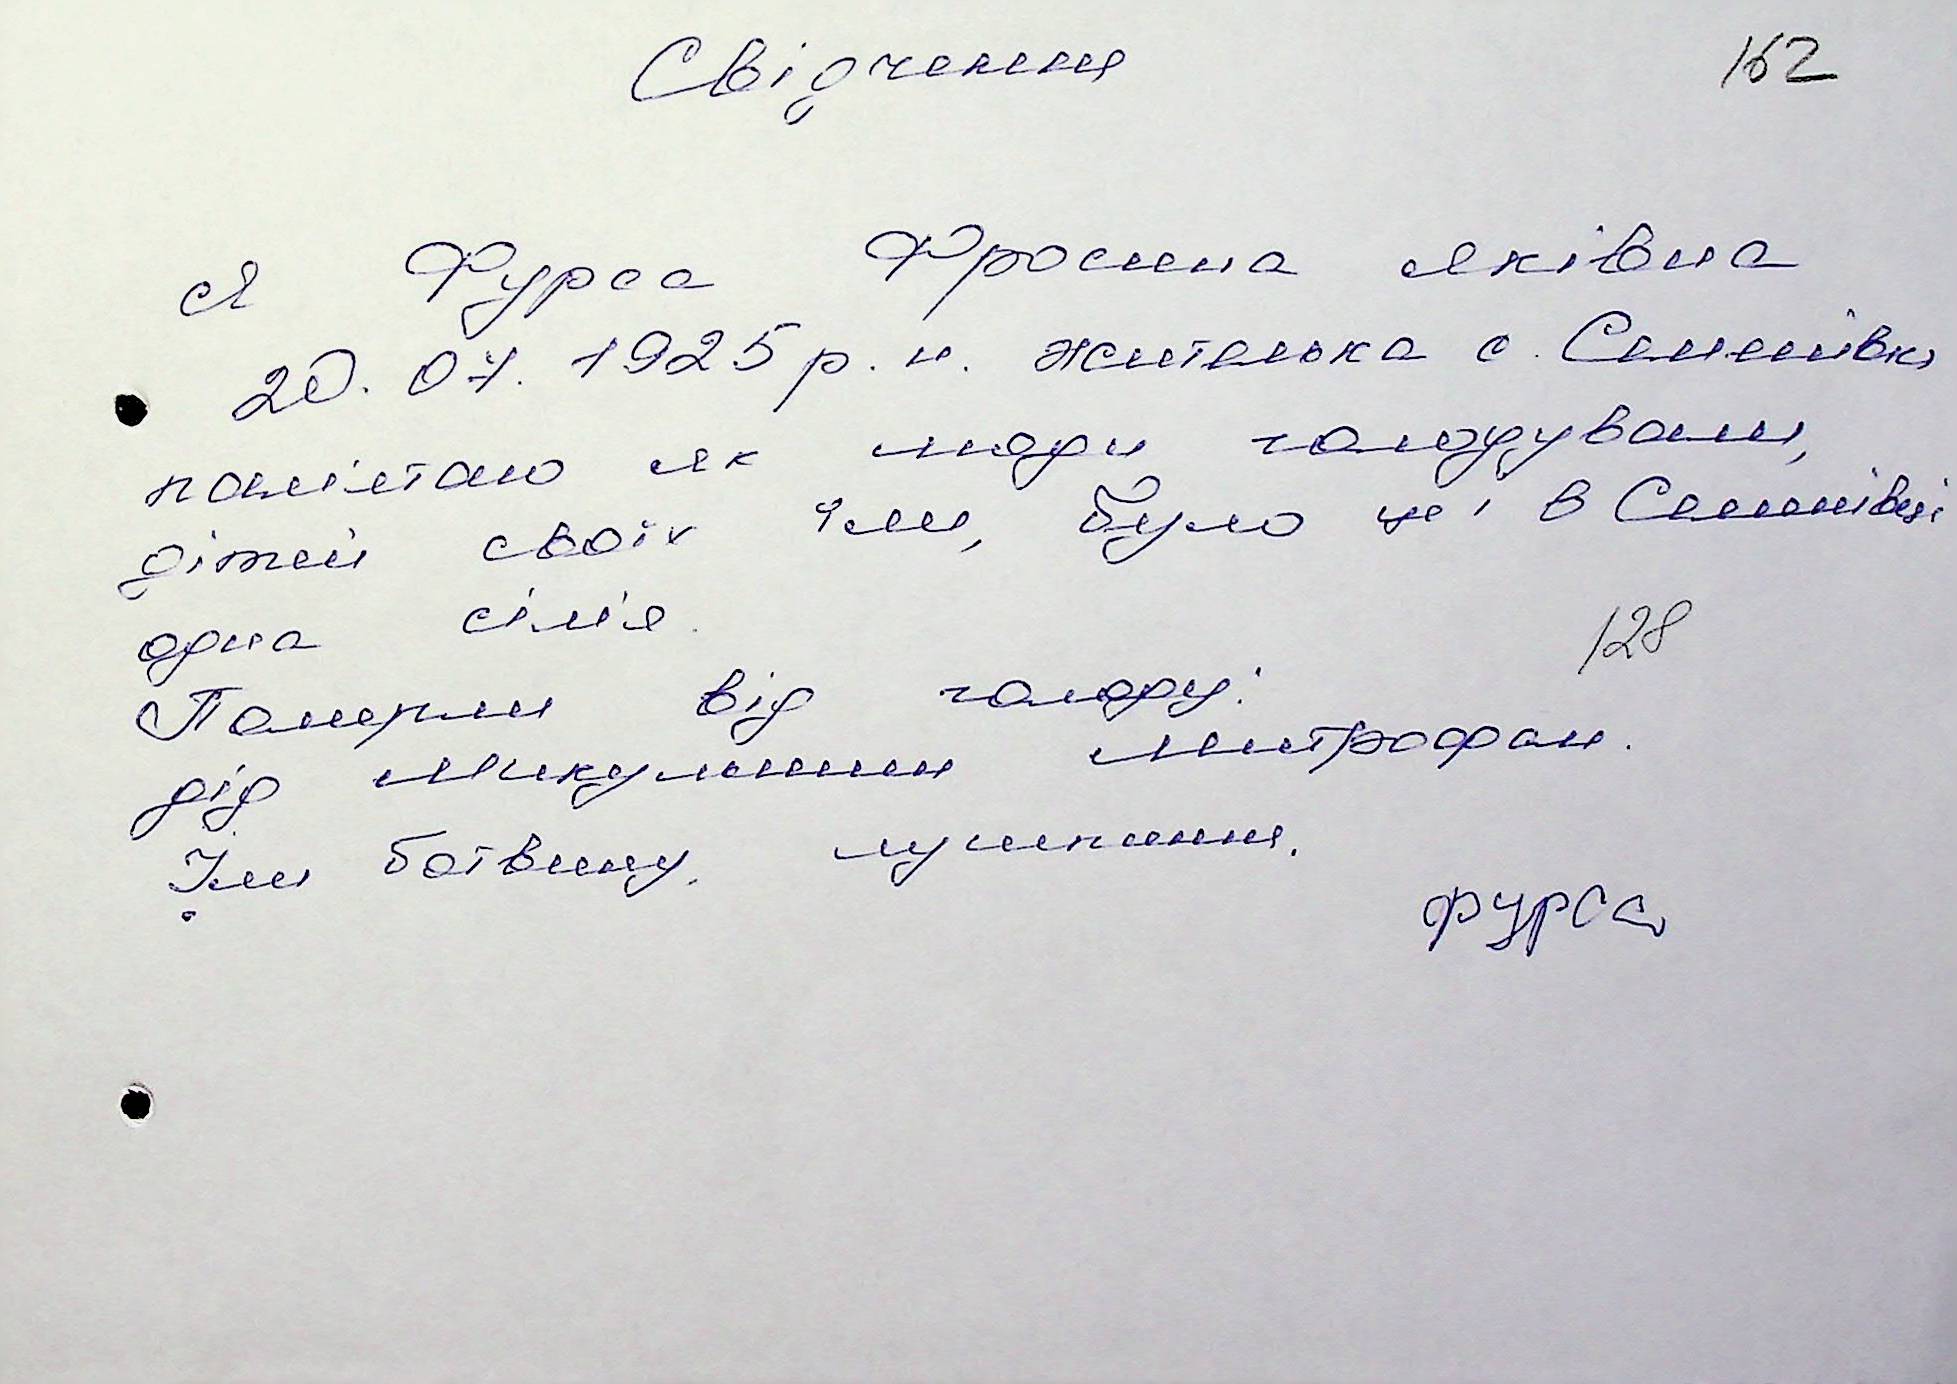 Свідчення
162
Я Фурса Фросина Яківна
20. 07. 1925 р. н. жителька с. Семенівки
памітаю як люди голодували,
дітей своїх їли, було це і в Семенівці
одна сімія.
128
Померли від голоду:
дід Микулинин Митрофан.
Їли ботвину. лушпиння.
Фурса